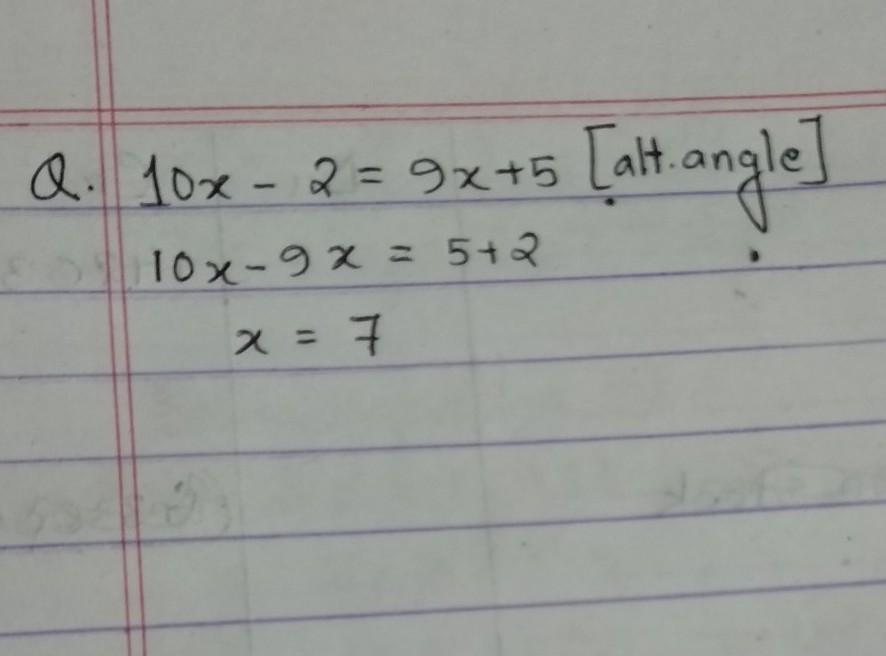 Q. 10x - 2 = 9x+5 [alt. angle]
10x - 9x = 5+2
x = 7